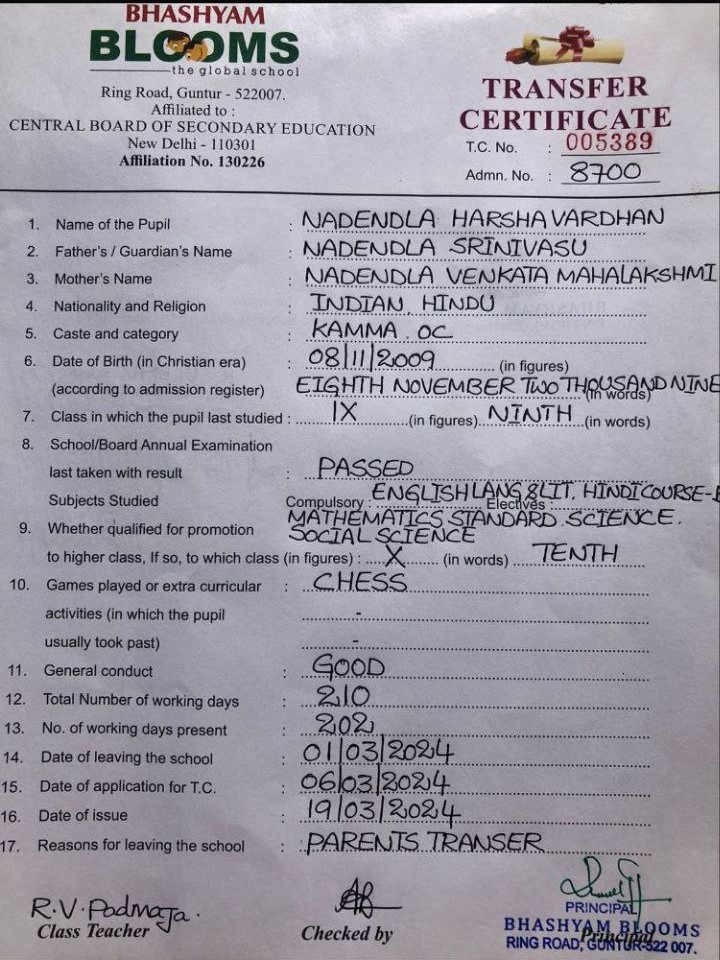 BHASHYAM
BLOOMS
the global school
Ring Road, Guntur - 522007.
Affiliated to :
CENTRAL BOARD OF SECONDARY EDUCATION
New Delhi - 110301
Affiliation No. 130226
TRANSFER
CERTIFICATE
T.C. No. : 005389
Admn. No. : 8700
1. Name of the Pupil : NADENDLA HARSHA VARDHAN
2. Father's / Guardian's Name : NADENDLA SRINIVASU
3. Mother's Name : NADENDLA VENKATA MAHALAKSHMI
4. Nationality and Religion : INDIAN, HINDU
5. Caste and category : KAMMA, OC
6. Date of Birth (in Christian era) : 08/11/2009 (in figures)
(according to admission register) EIGHTH NOVEMBER TWO THOUSAND NINE (in words)
7. Class in which the pupil last studied : IX (in figures) NINTH (in words)
8. School/Board Annual Examination
last taken with result : PASSED
Subjects Studied Compulsory : ENGLISH LANG & LIT, HINDI COURSE- Electives :
MATHEMATICS STANDARD. SCIENCE.
9. Whether qualified for promotion SOCIAL SCIENCE
to higher class, If so, to which class (in figures) : X (in words) TENTH
10. Games played or extra curricular : CHESS
activities (in which the pupil -
usually took past) -
11. General conduct : GOOD
12. Total Number of working days : 210
13. No. of working days present : 202
14. Date of leaving the school : 01/03/2024
15. Date of application for T.C. : 06/03/2024
16. Date of issue : 19/03/2024
17. Reasons for leaving the school : PARENTS TRANSER
R.V. Padmaja.
Class Teacher
Checked by
Principal
PRINCIPAL
BHASHYAM BLOOMS
RING ROAD, GUNTUR-522 007.